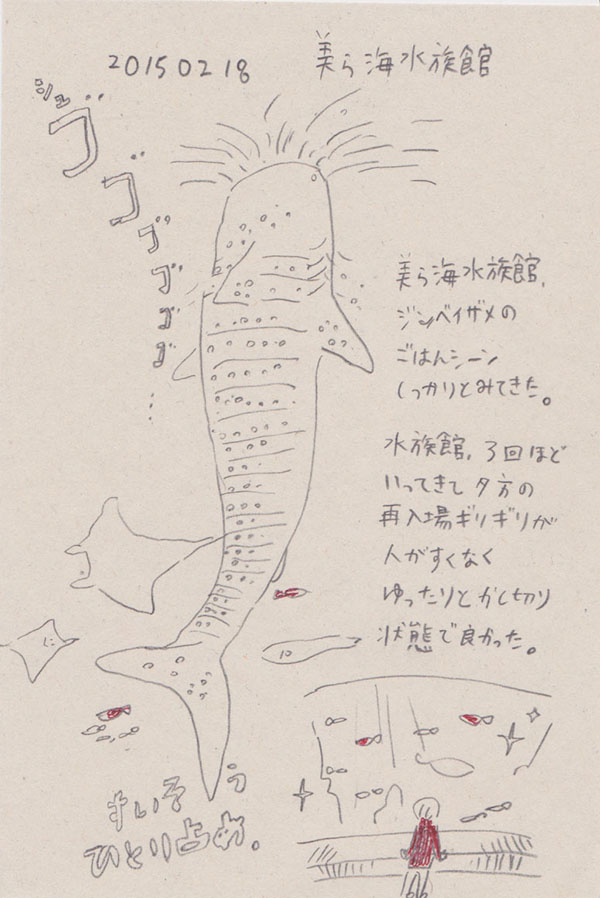 20150218 美ら海水族館
ジュゴゴゴゴゴゴ…
美ら海水族館、
ジンベイザメの
ごはんシーン
しっかりとみてきた。
水族館、3回ほど
いってきて夕方の
再入場ギリギリが
人がすくなく
ゆったりとかし切り
状態で良かった。
すい子う
ひとり占め。